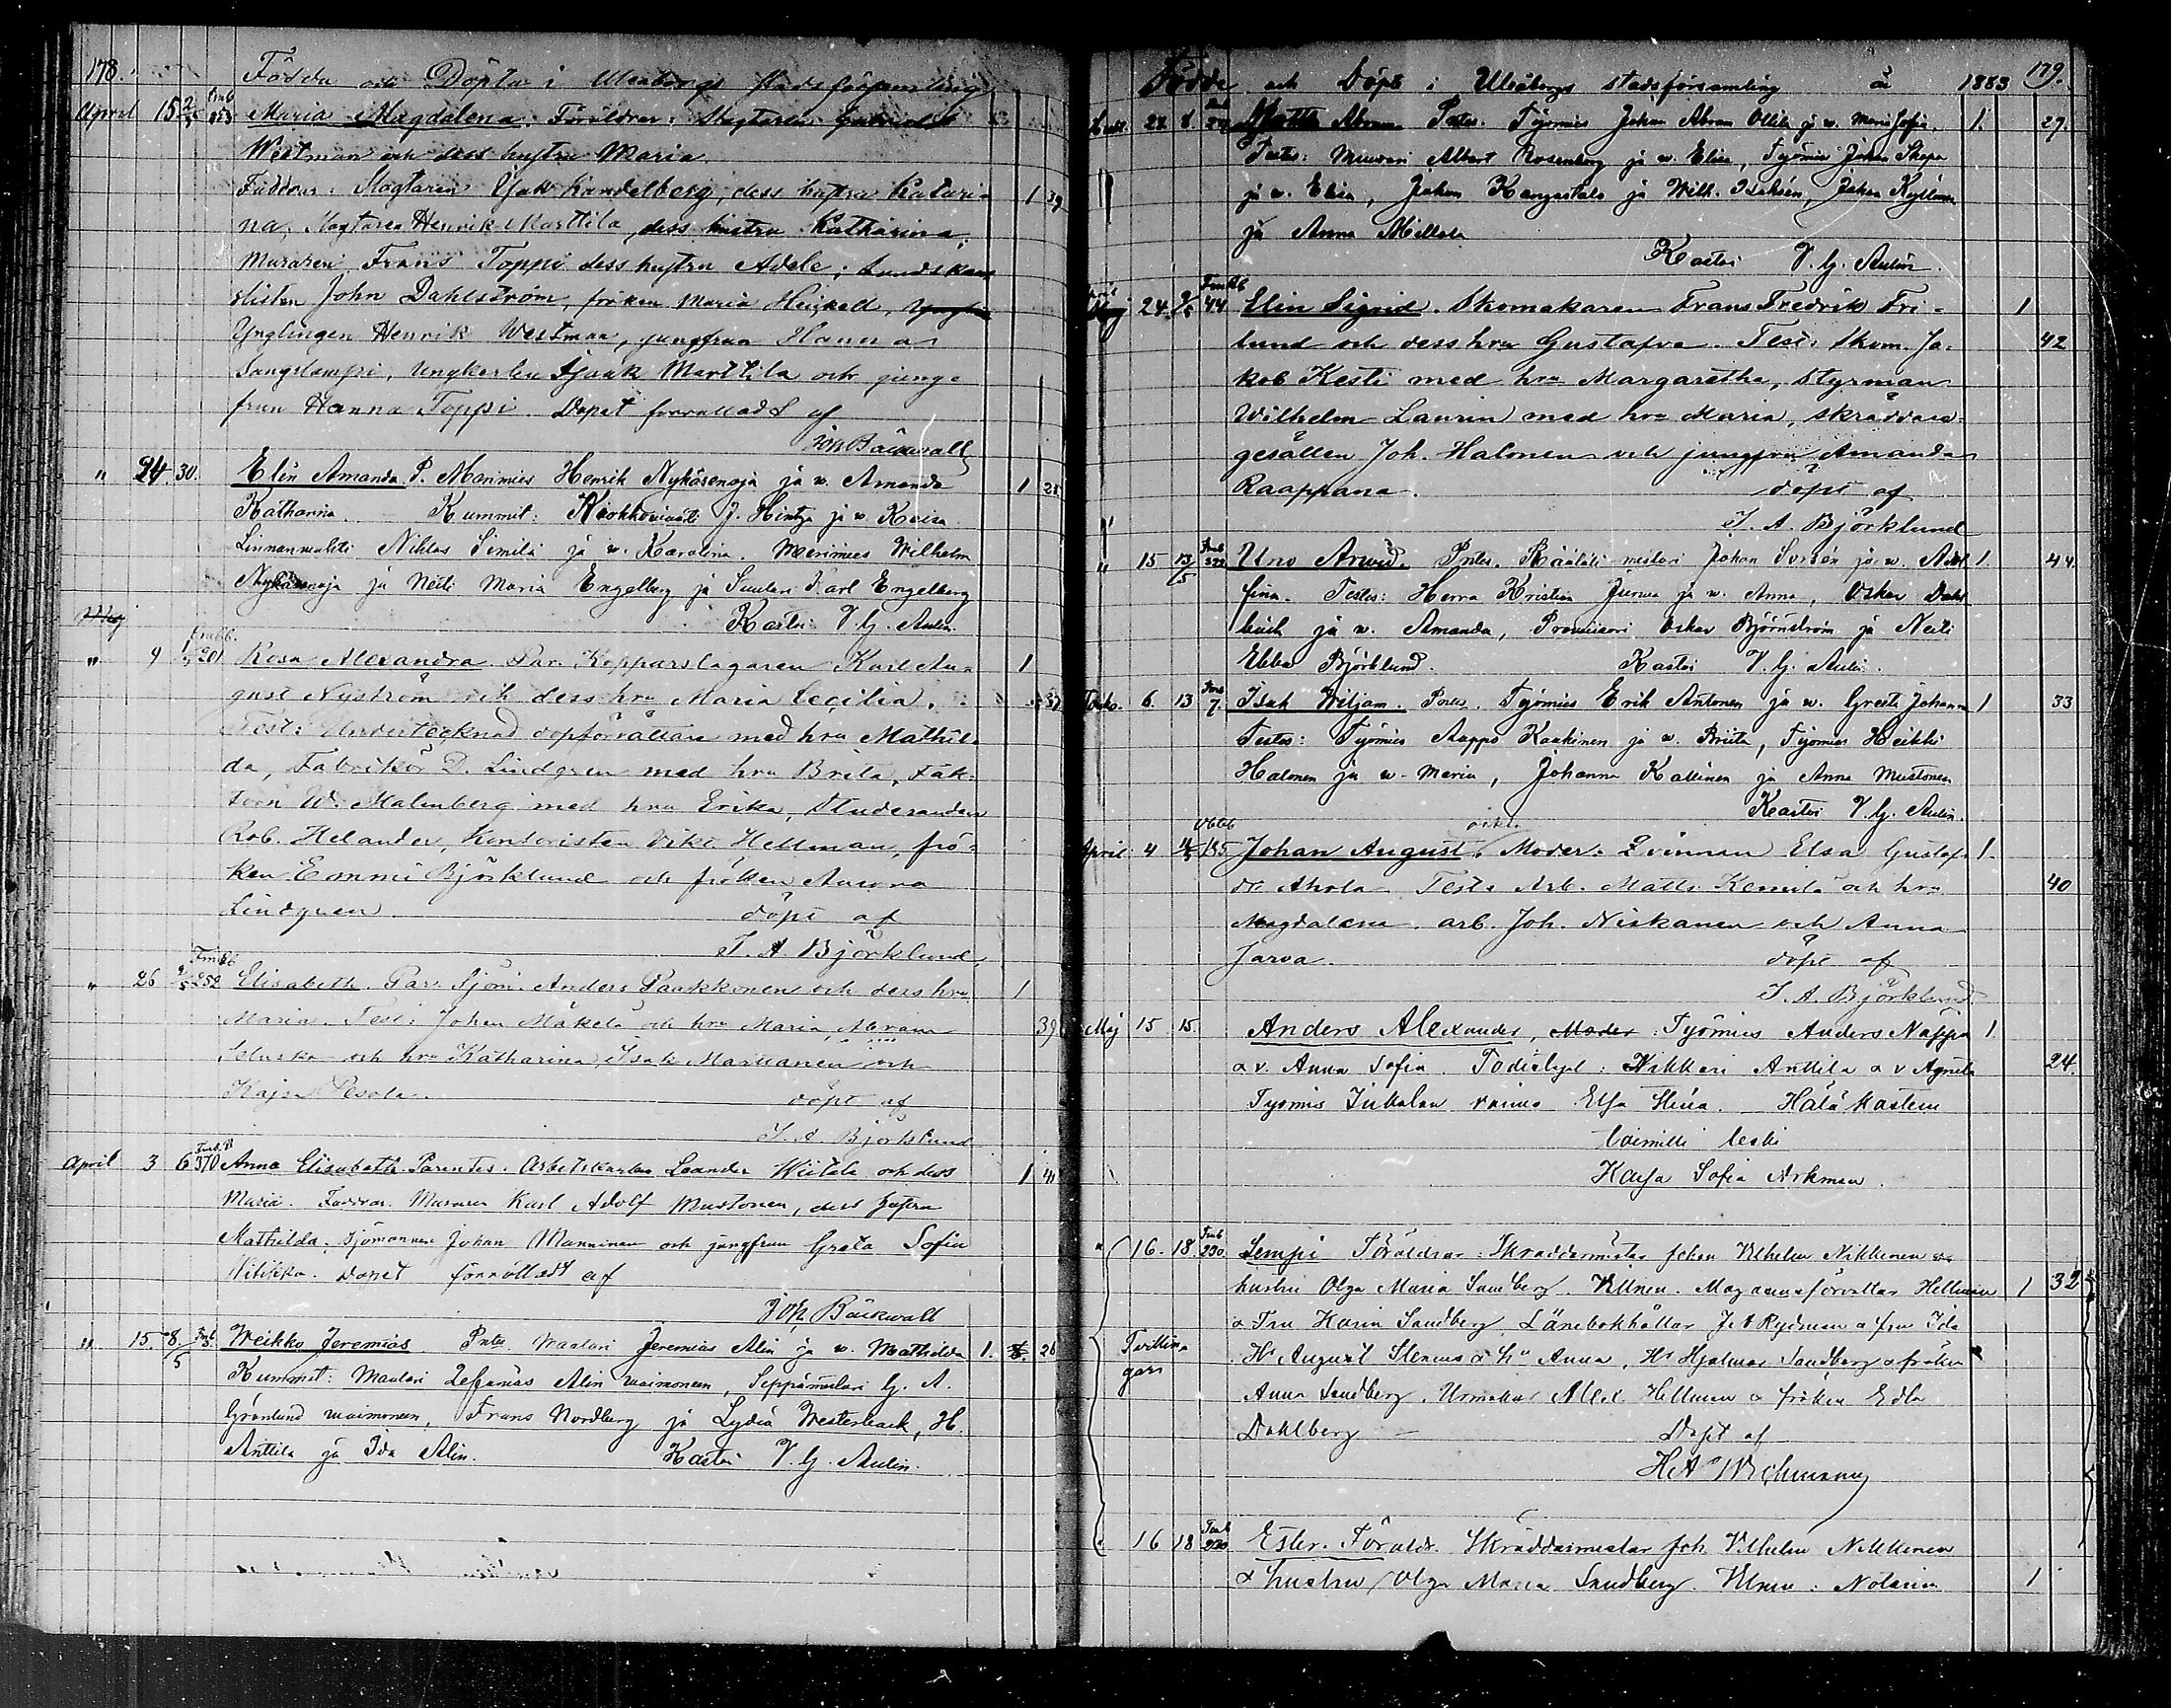 178.
Födda och Döpta i Uleåborgs stadsförsamling
April 15 2/5 Fmb 253 Maria Magdalena. Föräldrar: Slagtaren Gabriel
Westman och dess hustru Maria
Faddrar: Slagtaren Isak Kandelberg, dess hustru Katari- 1 39
na, Slagtaren Henrik Marttila, dess hustru Katharina,
Muraren Frans Toppi dess hustru Adele; Landskans
elisten John Dahlström, fröken Maria Heickell,
Ynglingen Henrik Westman, jungfrun Hanna
Sangslampi, ungkarlen Isaak Marttila och jung-
frun Hanna Toppi. Dopet förrättadt af
Joh Bäckvall
" 24 30. Elin Amanda P. Merimies Henrik Nykäsenoja ja w. Amanda 1 25
Katharina. Kummit: J. Hintza ja w. Kaisa
Linnanwahti Niklas Similä ja w. Karolina. Merimies Wilhelm
Nykäsenoja ja Neiti Maria Engelberg ja Suutari Karl Engelberg
Kastoi V. G. Aulin.
Maj
" 9 Fmbb. 201 Rosa Alexandra Par. Kopparslagaren Karl Au- 1
gust Nyström och dess hru Maria Cecilia.
Test: Undertecknad dopförrättare med hru Mathil-
da, Fabrikör D. Lindgren med hru Brita, Fak-
torn W. Malmberg med hru Erika, Studeranden
Rob. Helander, Kontoristen Vikt. Hellman, frö-
ken Emmi Björklund och fröken Aurora
Lindgren. döpt af
J. A. Björklund.
" 26 Fmbb 252 Elisabeth. Par. Sjöm. Anders Paakkonen och dess hru 1
Maria. Test: Johan Mäkelä och hru Maria, Abram 39
och hru Katharina, Isak Martianen och
Kajsa Pesola. döpt af
J. A. Björklund
April 3 6 370 Anna Elisabeth. Parentes. Arbetskarlen Leander Wiitala och dess 1 41
Maria. Faddrar. Muraren Karl Adolf Mustonen, dess hustru
Mathilda, Sjömannen Johan Manninen och jungfrun Greta Sofia
Witikka. Dopet förrättadt af
Joh Bäckvall
" 15. 8/5 Fmb 3. Weikko Jeremias Pntes. Maalari Jeremias Alin ja w. Mathilda 1. 26
Kummit: Maalari Zefanias Alin waimoneen, Seppämestari G. A.
Grönlund waimoneen, Frans Nordberg ja Lydia Westerback, H.
Anttila ja Ida Alin. Kastoi V. G. Aulin.
Födde och Döpte i Uleåborgs stadsförsamling år 1883 179.
28. 8 Abram Pntes. Työmies Johan Abram Ollila ja w. Maria Sofia. 1. 27.
Testes: Muurari Albert Rosenberg ja w. Elisa, Työmies Johan Skopa
ja w. Elisa, Johan Kangastalo ja Wilh. Isaksén, Johan Kyllönen
ja Anna Mikkola
Kastoi V. G. Aulin.
24 Fmbb 44 Elin Sigrid. Skomakaren Frans Fredrik Fri- 1
lund och dess hru Gustafva. Test: Skom. Ja- 42
kob Kesti med hru Margaretha, Styrman
Wilhelm Laurin med hru Maria, skräddare-
gesällen Joh. Halonen och jungfru Amanda
Raappana. döpt af
J. A. Björklund
" 15 13/5 Fmb 322 Uno Arvid. Pntes. Räätäli mestari Johan Sorsén ja w. Adol- 1. 44.
fina. Testes: Herra Kristian Jurvea ja w. Anna, Oskar Dahl
bäck ja w. Amanda, Proviisori Oskar Björnström ja Neiti
Ebba Björklund. Kastoi V. G. Aulin.
Touko. 6. 13 Fmb 7. Isak Wiljam. Pntes. Työmies Erik Antonen ja w. Greeta Johanna 1 33
Testes: Työmies Aappo Kaakinen ja w. Briita, Työmies Heikki
Halonen ja w. Maria, Johanna Kallinen ja Anna Mustonen
Kastoi V. G. Aulin.
April 4 185 Johan August. Moder: Qvinnan Elsa Gustafs- 1.
dr Ahola. Test: Arb. Matts Kemilä och hru 40
Magdalena. arb. Joh. Niskanen och Anna
Jarva. döpt af
J. A. Björklund
Maj 15 15. Anders Alexander, Moder: Työmies Anders Näppä 1.
o. v. Anna Sofia. Todistajat: Nikkari Anttila o. v. Agneta 24.
Työmis vaimo Elsa Hätäkasteen
toimitti leski
Kajsa Sofia Arkman.
" 16. 18 Fmb 230. Lempi Föräldrar: Skräddarmästar Johan Vilhelm Nikkinen o
hustru Olga Maria Sandberg. Vittnen. Magasinsförvaltar Hellman 1 32
o Fru Karin Sandberg. Länsbokhållar J A Rydman o fru Ida
Tvillin-
gar
Hr August Stenius o hu Anna, Hr Hjalmar Sandberg o fröken
Anna Sandberg. Urmakar Alex. Hellman o fröken Edla
Dahlberg Döpt af
16 18 Fmb 230 Ester. Föräldr. Skräddarmästar Joh. Vilhelm Nikkinen
o hustru Olga Maria Sandberg. Vittnen: Notarien 1